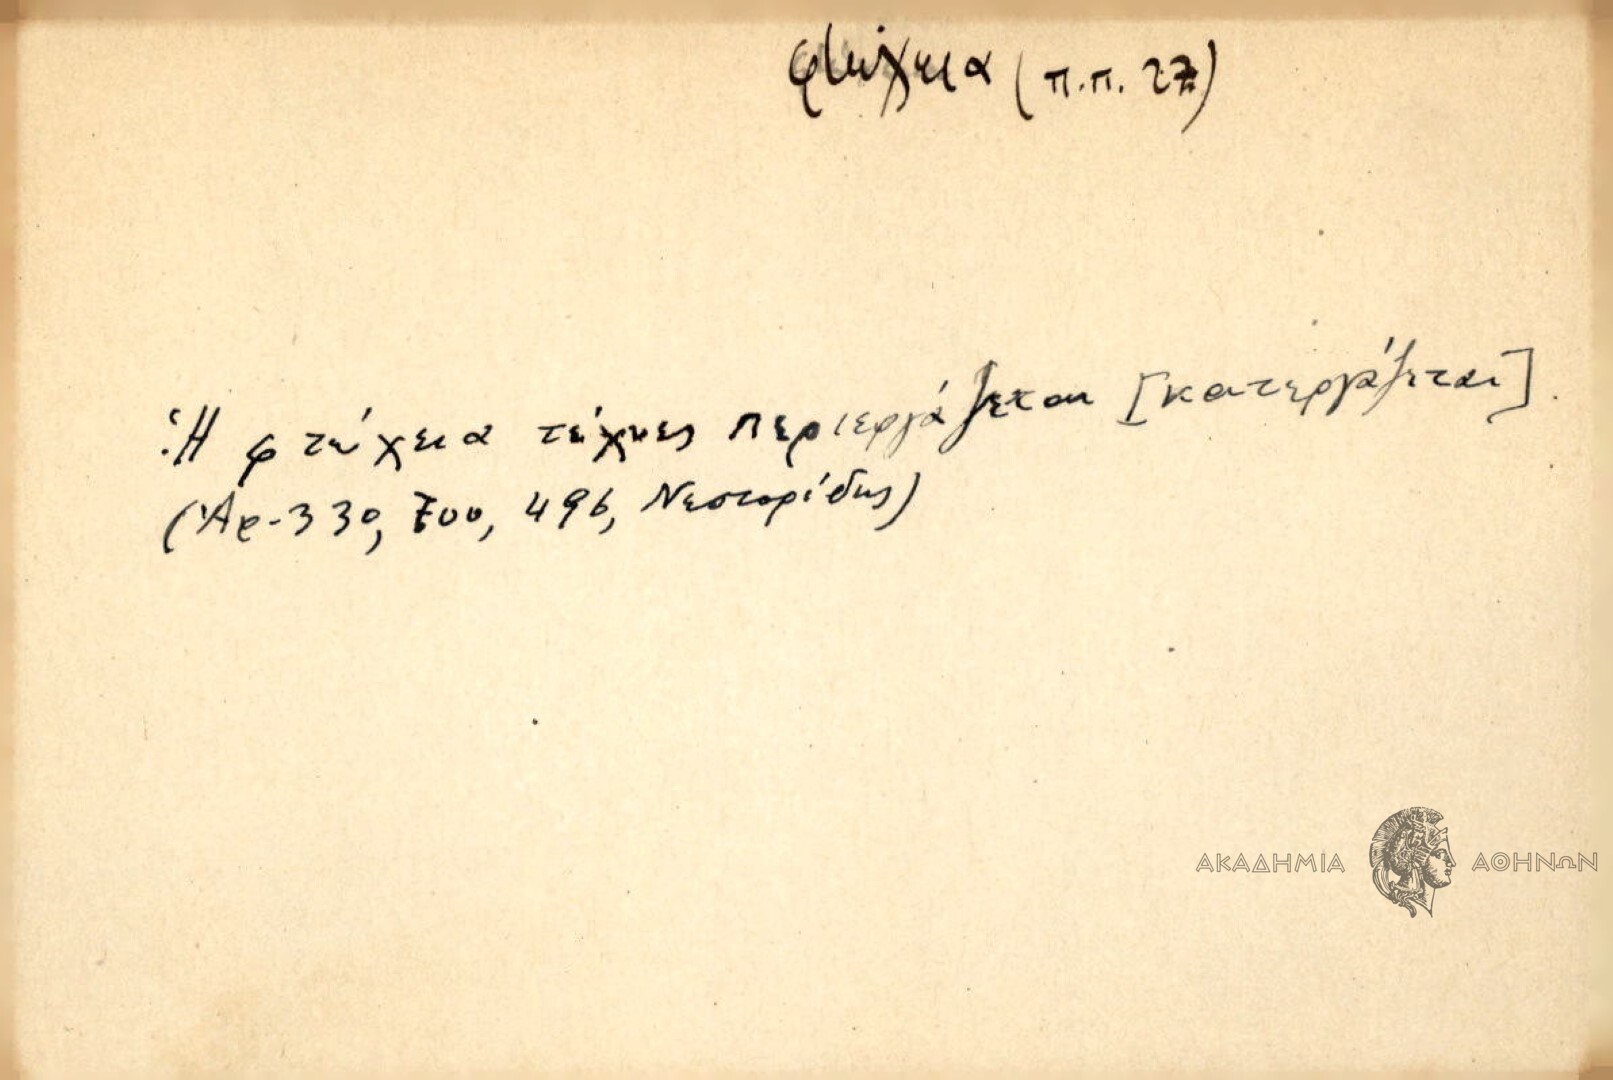 φτώχεια (π.π. 27)
Ἡ φτώχεια τέχνες περιεργάζεται [κατεργάζεται].
(Ἀρ. 330, 496, Νεστορίδης)
ΑΚΑΔΗΜΙΑ ΑΘΗΝΩΝ